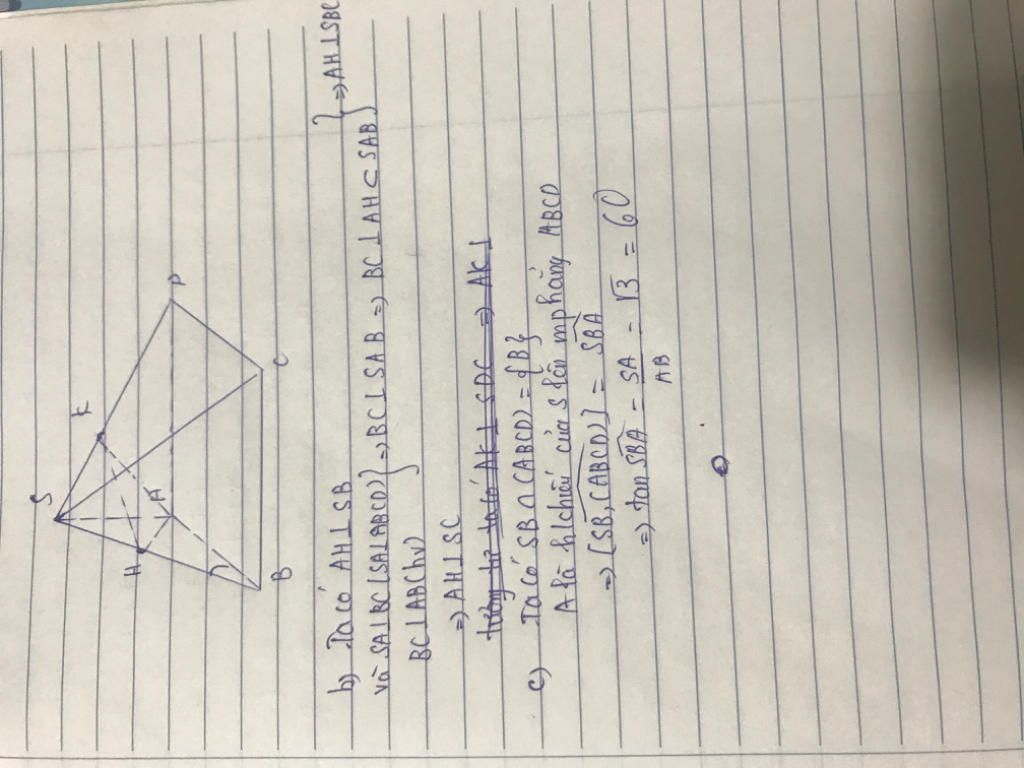 S
K
H
A
D
B
C
b) Ta có AH⊥SB
và SA⊥BC (SA⊥ABCD) } ⇒ BC⊥SAB ⇒ BC⊥AH⊂SAB) } ⇒ AH⊥SBC
BC⊥AB(hv)
⇒ AH⊥SC
tương tự ta có AK⊥SDC ⇒ AK⊥
c) Ta có SB∩(ABCD) = {B}
A là hchiếu của S lên mphẳng ABCD
⇒ [SB,(ABCD)] = SBA
⇒ tan SBA = SA/AB = √3 = 60